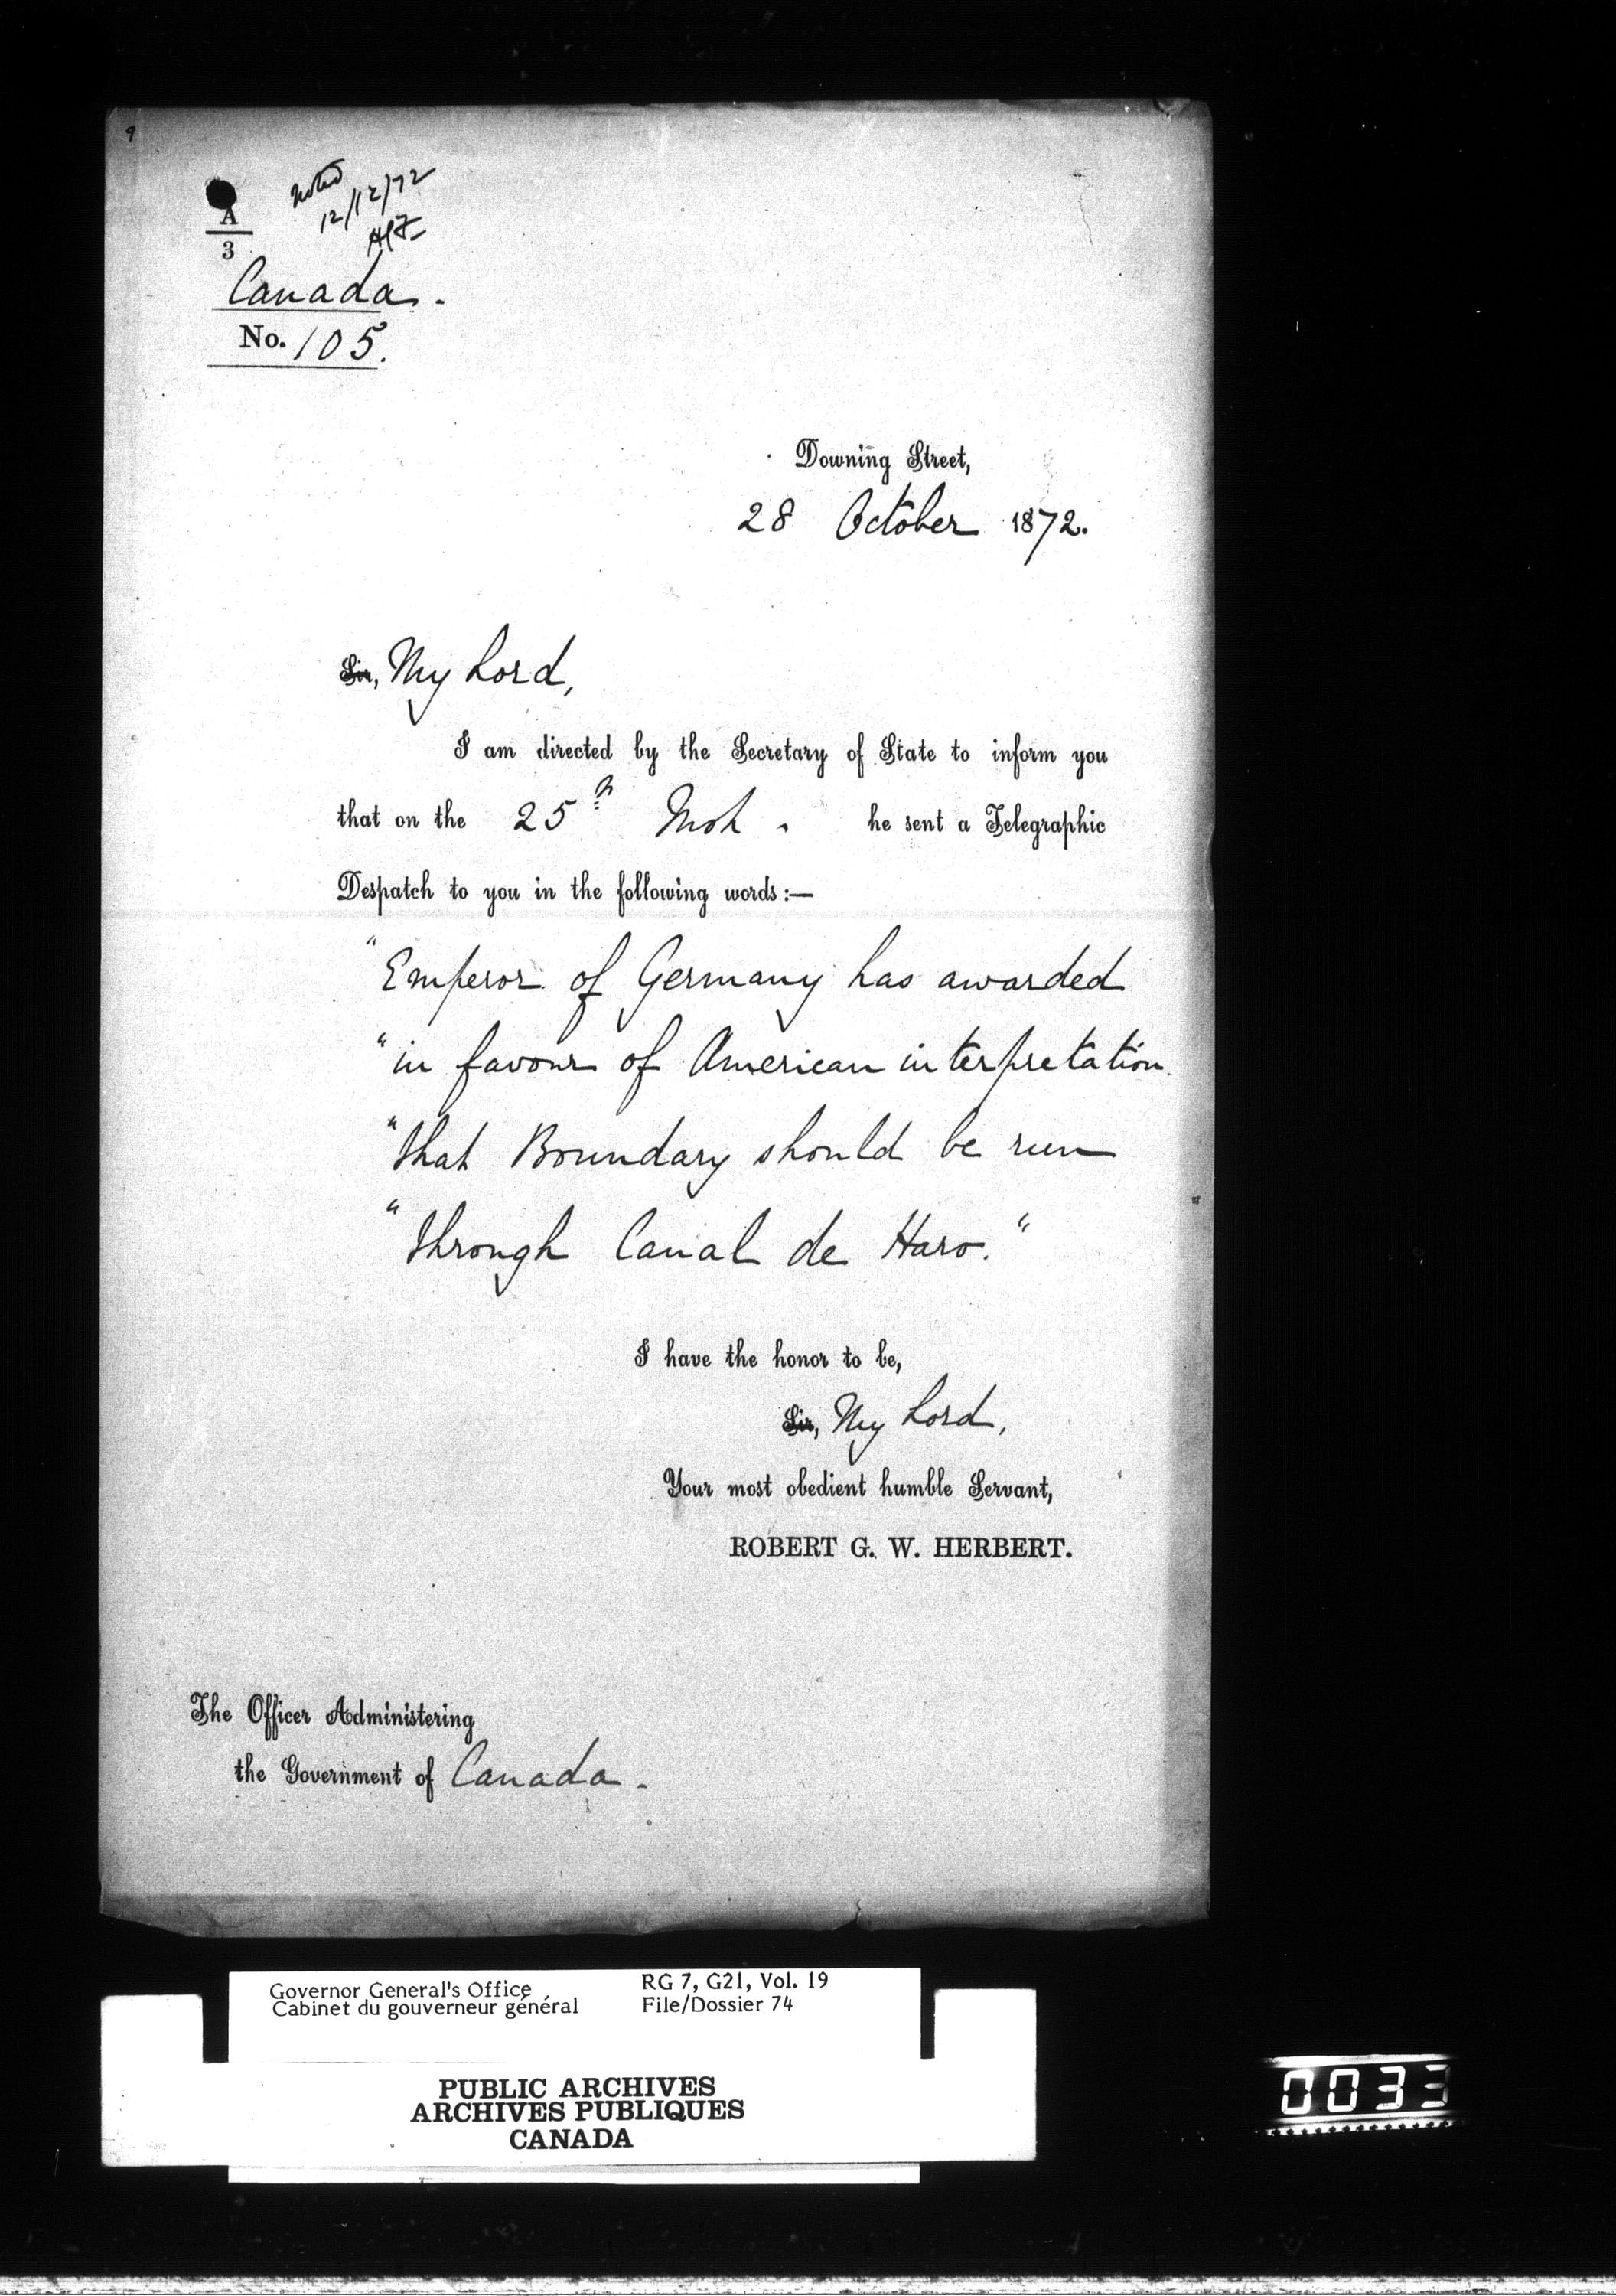 9
A
3
noted
12/12/72
Canada.
No. 105.
Downing Street,
28 October 1872.
Sir, My Lord,
I am directed by the Secretary of State to inform you
that on the 25th he sent a Telegraphic
Despatch to you in the following words:—
"Emperor of Germany has awarded
"in favour of American interpretation
"that Boundary should be run
"through Canal de Haro."
I have the honor to be,
Sir, My Lord,
Your most obedient humble Servant,
ROBERT G. W. HERBERT.
The Officer Administering
the Government of Canada.
Governor General's Office RG 7, G21, Vol. 19
Cabinet du gouverneur général File/Dossier 74
PUBLIC ARCHIVES
ARCHIVES PUBLIQUES
CANADA
0033